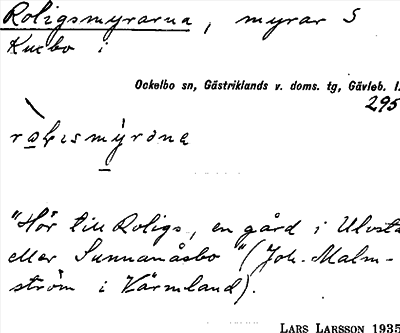 Roligsmyrarna, myrar S
Knebo i
Ockelbo sn, Gästriklands v. doms. tg, Gävleb. l.
295
"Hör till Roligs, en gård i Ulvsta
eller Sunnanåsbo" (Joh. Malm-
ström i Värmland).
LARS LARSSON 1935